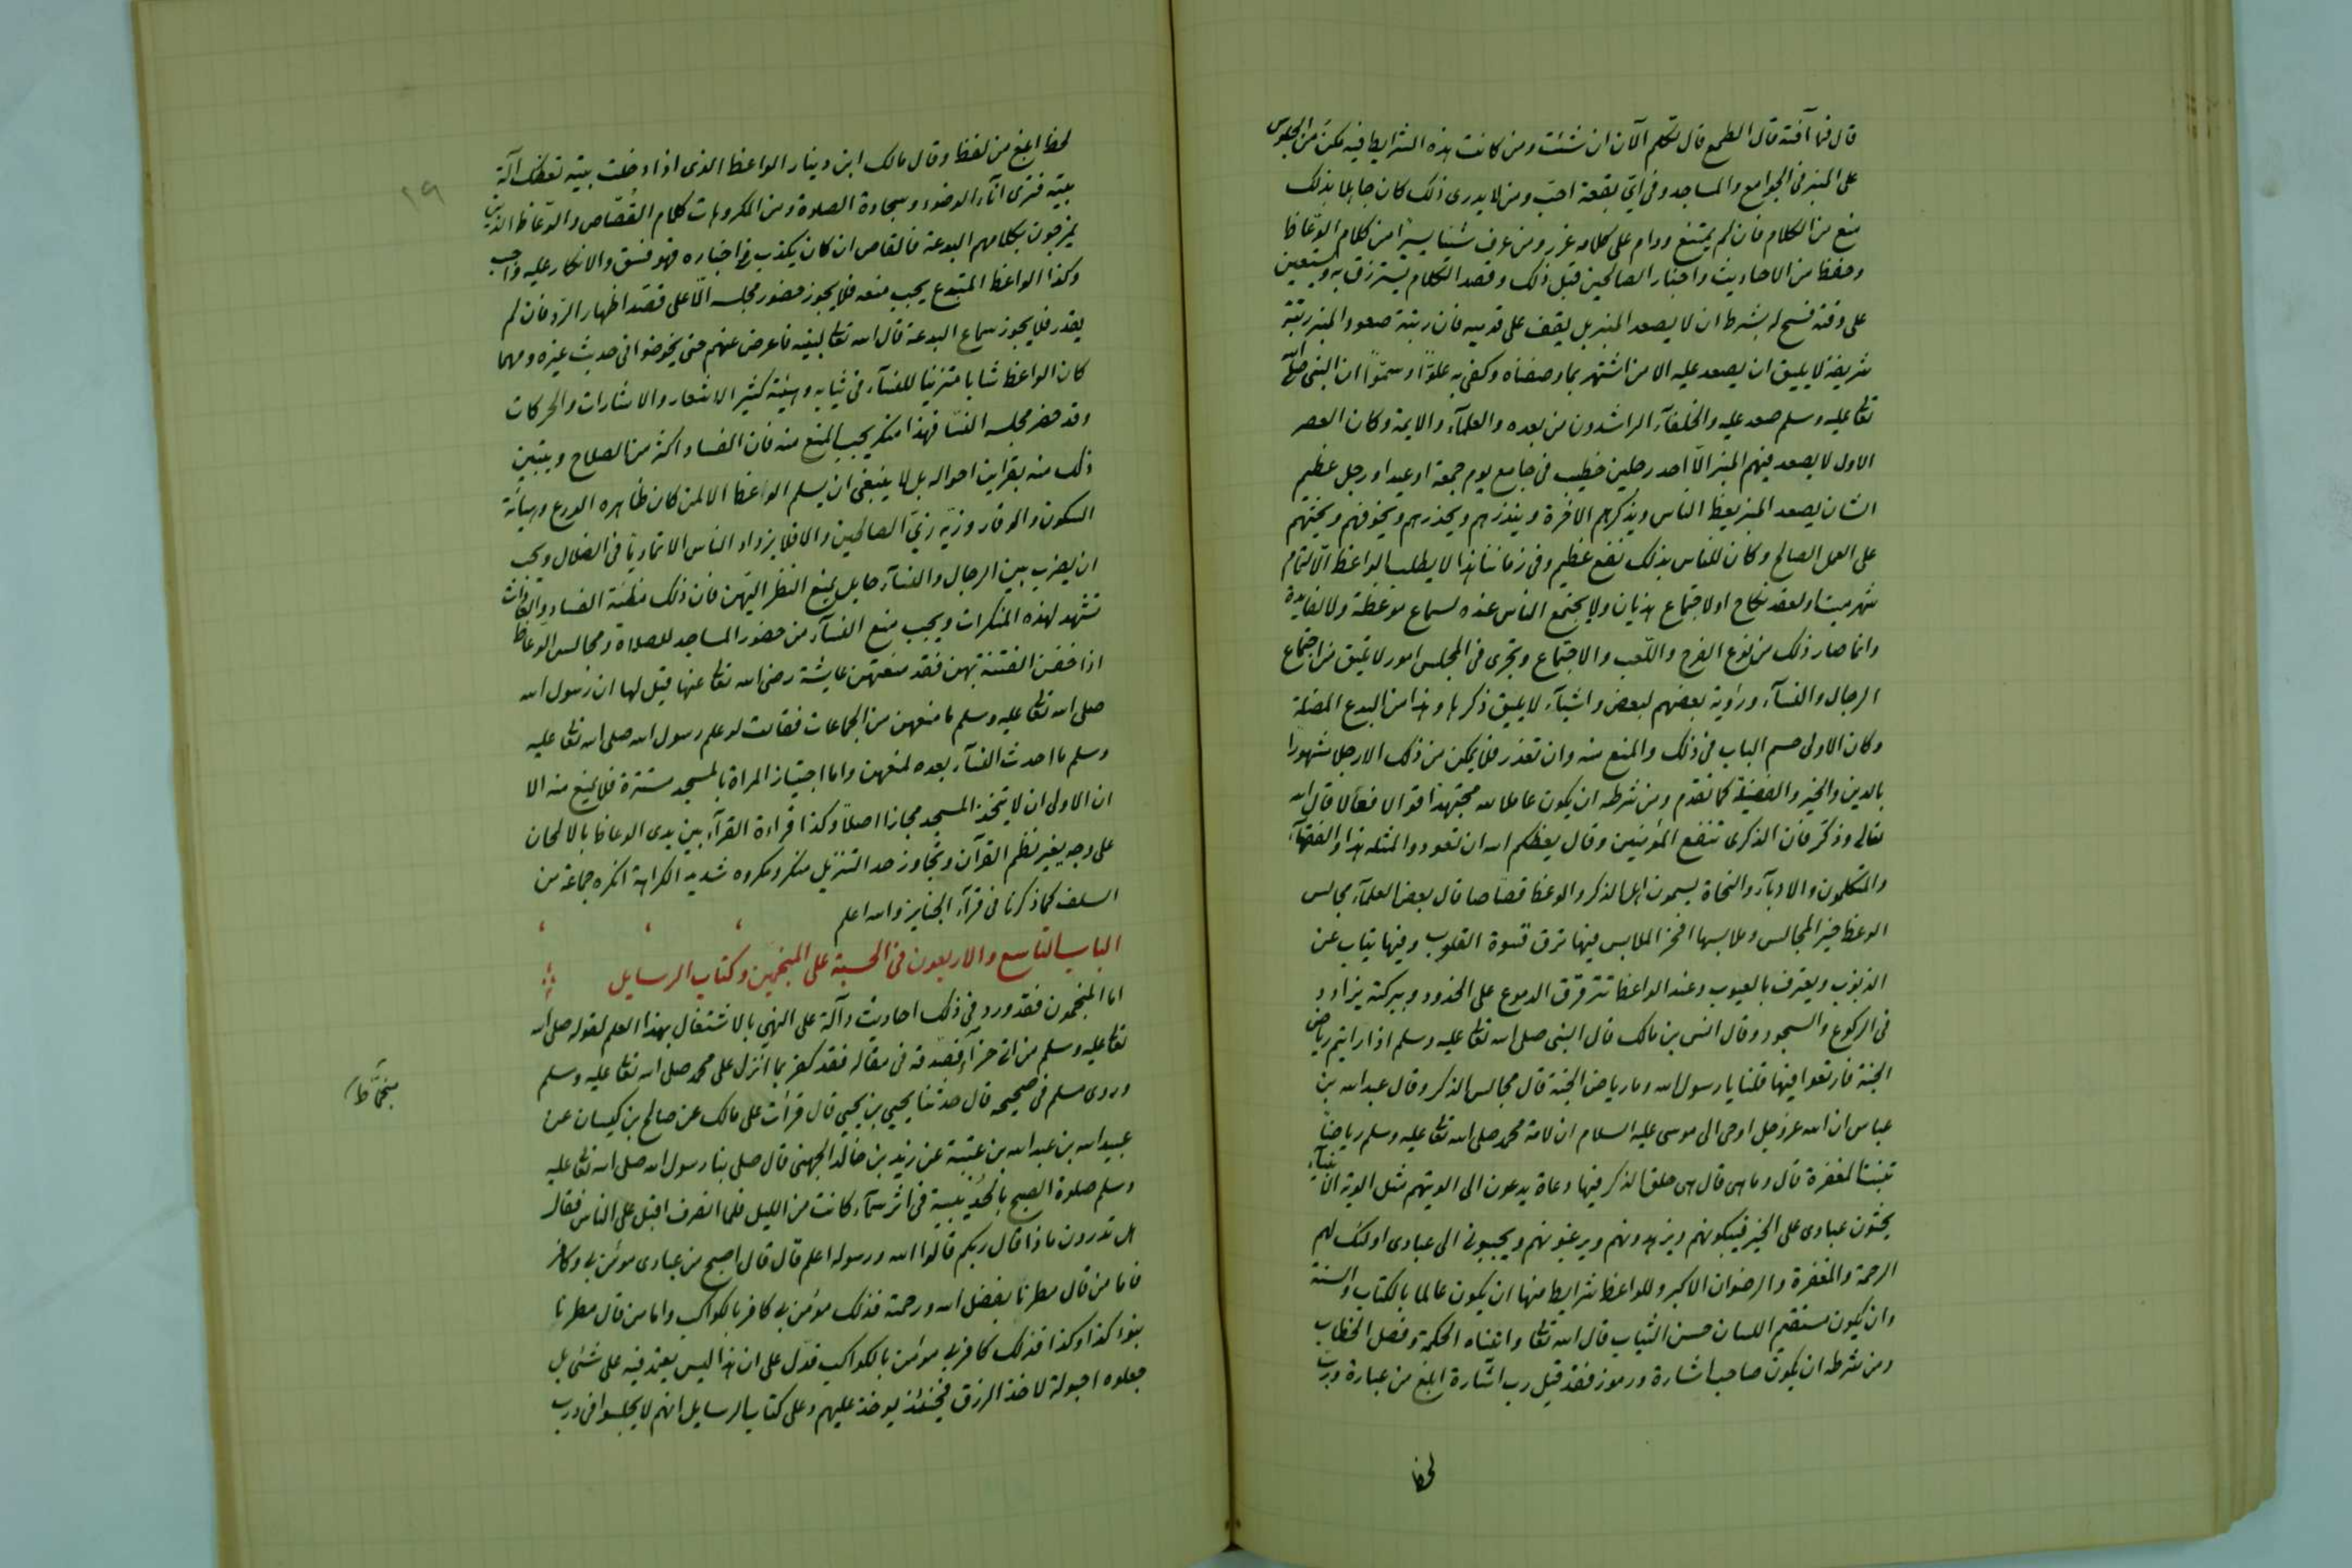 قال فما آفته قال الطمع قال تكلم الآن ان شئت ومن كانت هذه الشرايط فيه مكن من الجلوس
على المنبر فى الجوامع والمساجد وفى اىّ بقعة احبّ ومن لا يدرى ذلك كان جاهلا بذلك
منع من الكلام فان لم يمتنع ودام على كلامه عزر ومن عرف شيئا يسيرا من كلام الوعّاظ
وحفظ من الاحاديث واخبار الصالحين قبل ذلك وقصد الكلام يسترزق به ويستعين
على وقته فسح له بشرط ان لا يصعد المنبر بل يقف على قدميه فان رتبة صعود المنبر رتبة
شريفة لا يليق ان يصعد عليه الا من اشتهر بما وصفناه وكفى به علوّا وسموّا ان النبى صلى الله
تعا عليه وسلم صعد عليه والخلفآء الراشدون من بعده والعلمآء والايمة وكان العصر
الاول لا يصعد فيهم المنبر الّا احد رجلين خطيب فى جامع يوم جمعة او عيد او رجل عظيم
الشان يصعد المنبر يعظ الناس ويذكرهم الاخرة وينذرهم ويحذرهم ويخوفهم ويحثهم
على العمل الصالح وكان للناس بذلك نفع عظيم وفى زماننا هذا لا يطلب الواعظ الّا لتمام
شهر ميت او لعقد نكاح او لاجتماع هذيان ولا يجتمع الناس عنده لسماع موعظة ولا لفايدة
وانما صار ذلك من نوع الفرح واللّعب والاجتماع وتجرى فى المجلس امور لا تليق من اجتماع
الرجال والنسآء ورؤية بعضهم لبعض واشيآء لا يليق ذكرها وهذا من البدع المضلة
وكان الاولى حسم الباب فى ذلك والمنع منه وان تعذر فلا يمكن من ذلك الا رجلا مشهورا
بالدين والخير والفضيلة كما تقدم ومن شرطه ان يكون عاملا لله مجتهدا قوالا فعالا قال الله
تعالى وذكّر فان الذكرى تنفع المؤمنين وقال يعظكم الله ان تعودوا لمثله هذا والفقهآء
والمتكلمون والادبآء والنحاة يسمون اهل الذكر والوعظ قصّاصا قال بعض العلمآء مجالس
الوعظ خير المجالس وملابسها افخر الملابس فيها ترق قسوة القلوب وفيها يتاب عن
الذنوب ويعترف بالعيوب وعند الواعظ تترقرق الدموع على الخدود وببركته يزادد
فى الركوع والسجود وقال انس بن مالك قال النبى صلى الله تعا عليه وسلم اذا رايتم رياض
الجنة فارتعوا فيها قلنا يا رسول الله وما رياض الجنة قال مجالس الذكر وقال عبد الله بن
عباس ان الله عز وجل اوحى الى موسى عليه السلام ان لامة محمد صلى الله تعا عليه وسلم رياضا
تنبت المغفرة قال وما هى قال هى حلق الذكر فيها دعاة يدعون الى الوهيتهم مثل الوية الانبيآء
يحثون عبادى على الخير فيبكونهم ويزهدونهم ويرغبونهم ويحببونى الى عبادى اولئك لهم
الرحمة والمغفرة والرضوان الاكبر وللواعظ شرايط منها ان يكون عالما بالكتاب والسنة
وان يكون مستقيم اللسان حسن الثياب قال الله تعا واتيناه الحكمة وفصل الخطاب
ومن شرطه ان يكون صاحب اشارة ورموز فقد قيل رب اشارة ابلغ من عبارة وربّ
لحظ
٢٩
لحظ ابلغ من لفظ وقال مالك ابن دينار الواعظ الذى اذا دخلت بيته تعظك آلة
بيته فترى اناء الوضوء وسجادة الصلوة ومن المكروهات كلام القُصّاص والوعّاظ الذين
يمزجون بكلامهم البدعة فالقاص ان كان يكذب فى اخباره فهو فسق والانكار عليه واجب
وكذا الواعظ المبتدع يجب منعه فلا يجوز حضور مجلسه الّا على قصد اظهار الرد فان لم
يقدر فلا يجوز سماع البدعة قال الله تعا لنبيه فاعرض عنهم حتى يخوضوا فى حديث غيره ومهما
كان الواعظ شابا متزينا للنسآء فى ثيابه وهيئته كثير الاشعار والاشارات والحركات
وقد حضر مجلسه النسّا فهذا منكر يجب المنع منه فان الفساد اكثر من الصلاح ويتبين
ذلك منه بقراين احواله بل لا ينبغى ان يسلم الواعظ الا لمن كان ظاهره الورع وهيأته
السكون والوقار وزيّه زىّ الصالحين والا فلا يزداد الناس الا تماديا فى الضلال ويجب
ان يضرب بين الرجال والنسآء حايل يمنع النظر اليهن فان ذلك مظنة الفساد والعادات
تشهد لهذه المنكرات ويجب منع النسآء من حضور المساجد للصلاة ومجالس الوعاظ
اذا خفن الفتنة بهن فقد منعتهن عايشة رضى الله تعا عنها قيل لها ان رسول الله
صلى الله تعا عليه وسلم ما منعهن من الجماعات فقالت لو علم رسول الله صلى الله تعا عليه
وسلم ما احدث النسآء بعده لمنعهن واما اجتياز المراة بالمسجد مستترة فلا يمنع منه الا
ان الاولى ان لا تتخذ المسجد مجازا اصلا وكذا قراءة القرآء بين يدى الوعاظ بالالحان
على وجه يغير نظم القرآن وتجاوز حد التنزيل منكر ومكروه شديد الكراهة انكره جماعة من
السلف كما ذكرنا فى قرآء الجنايز والله اعلم
الباب التاسع والاربعون فى الحسبة على المنجمين وكتاب الرسايل
اما المنجمون فقد ورد فى ذلك احاديث دآلة على النهى بالاشتغال بهذا العلم لقوله صلى الله
تعا عليه وسلم من اتى حزآء فصدقه فى مقاله فقد كفر بما انزل على محمد صلى الله تعا عليه وسلم
وروى مسلم فى صحيحه قال حدثنا يحيى بن يحيى قال قرأت على مالك عن صالح بن كيسان عن
عبيد الله بن عبد الله بن عتبة عن زيد بن خالد الجهنى قال صلى بنا رسول الله صلى الله تعا عليه
وسلم صلوة الصبح بالحُدَيبية فى اثر سمآء كانت من الليل فلما انصرف اقبل على الناس فقال
هل تدرون ماذا قال ربكم قالوا الله ورسوله اعلم قال قال اصبح من عبادى مؤمن بى وكافر
فاما من قال مطرنا بفضل الله ورحمته فذلك مؤمن بى كافر بالكواكب واما من قال مطرنا
بنوء كذا وكذا فذلك كافر بى مؤمن بالكواكب فدل على ان هذا ليس يعتد فيه على شئ بل
جعلوه احبولة لاخذ الرزق فحينئذ يوخذ عليهم وعلى كتاب الرسايل انهم لا يجلسوا فى درب